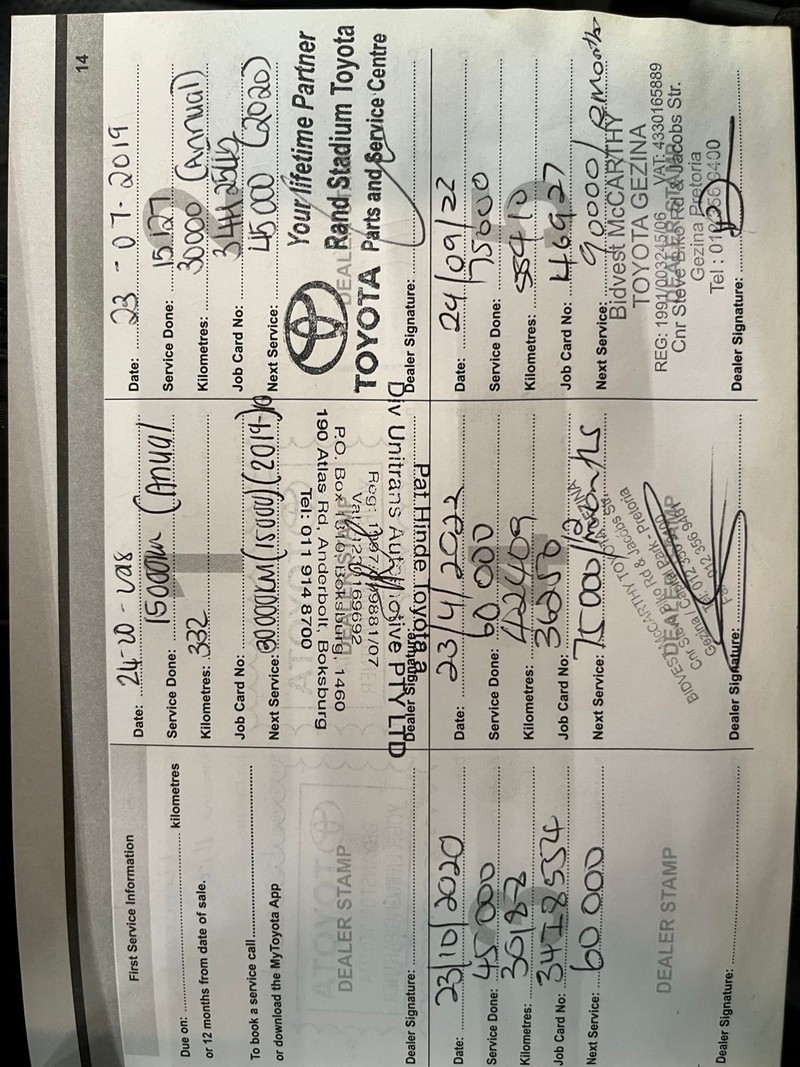 14
First Service Information
Due on: Kilometres
or 12 months from date of sale.
To book a service call
or download the MyToyota App
DEALER STAMP
Dealer Signature:
Date:
Service Done: 15000km (Anual
Kilometres: 332
Job Card No:
Next Service: 30000km (15000) (2019-10
Pat Hinde Toyota a
Div Unitrans Automotive PTY LTD
P.O. Box Boksburg, 1460
190 Atlas Rd, Anderbolt, Boksburg
Tel: 011 914 8700
Dealer Signature:
Date: 23-07-2019
Service Done: 15127
Kilometres: 30000 (Annual)
Job Card No:
Next Service: 45000 (2020)
Your lifetime Partner
Rand Stadium Toyota
TOYOTA Parts and Service Centre
Dealer Signature:
Date: 23/10/2020
Service Done: 45 000
Kilometres: 30187
Job Card No:
Next Service: 60 000
DEALER STAMP
Dealer Signature:
Date: 23/4/2022
Service Done: 60 000
Kilometres: 42409
Job Card No: 36250
Next Service: 75000/12 months
DEALER STAMP
Dealer Signature:
Date: 24/09/22
Service Done: 75000
Kilometres: 55910
Job Card No: 46927
Next Service: 90000/
Bidvest McCARTHY
TOYOTA GEZINA
REG: 1991/003245/06 VAT: 4330165889
Cnr Steve Biko Rd & Jacobs Str.
Gezina Pretoria
Dealer Signature: